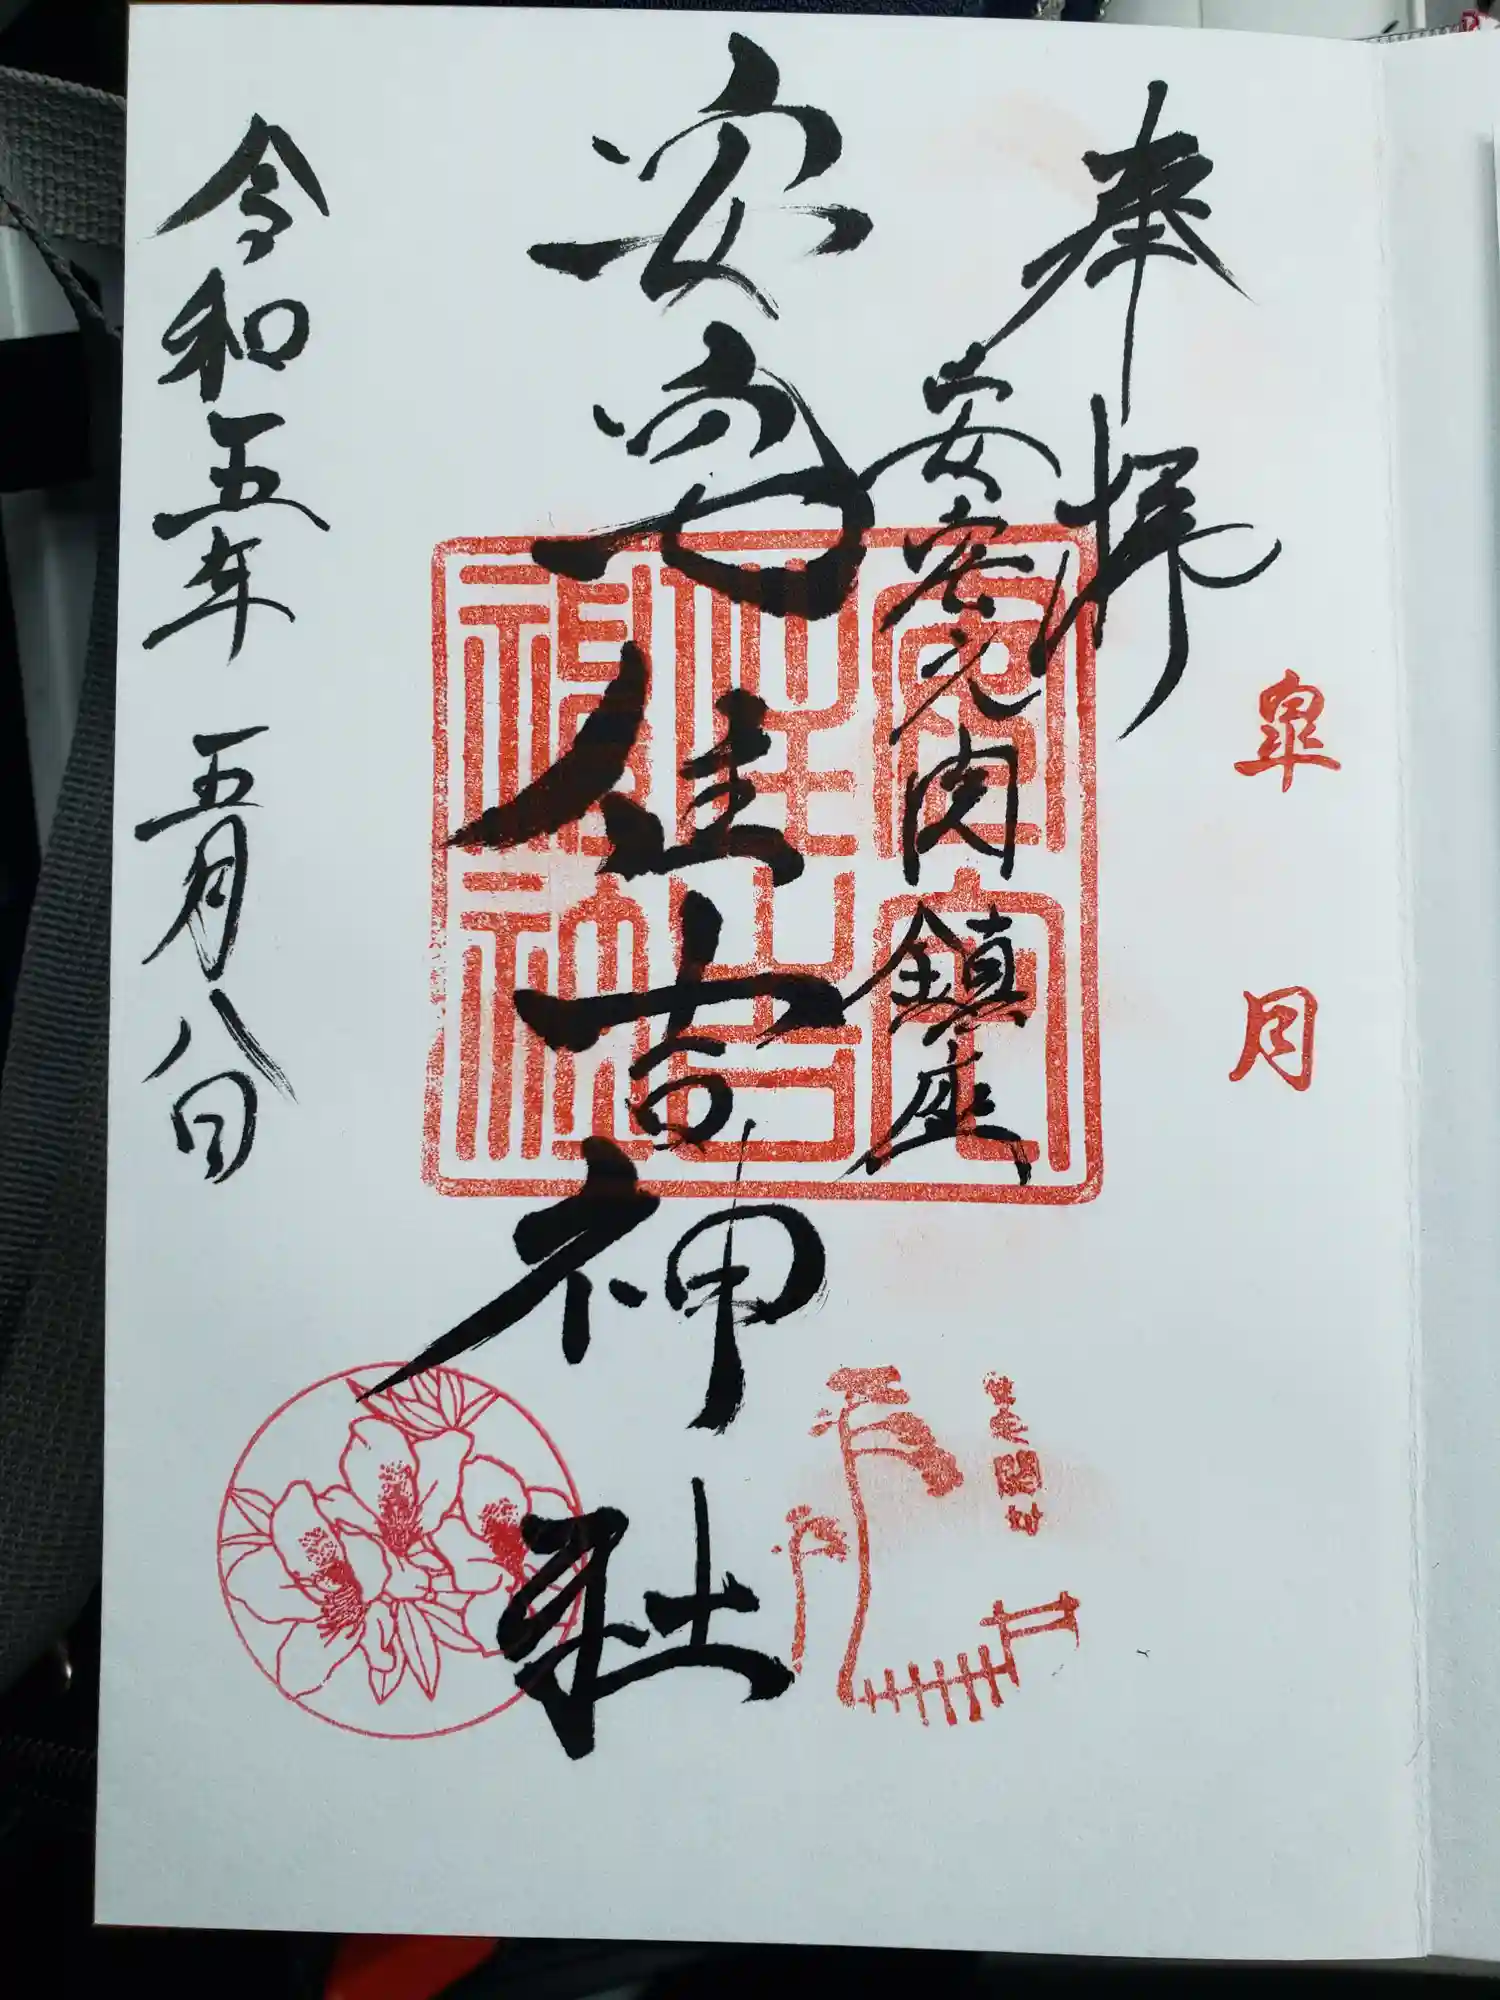 皐月
奉拝
安宅之関鎮座
安宅住吉神社
令和五年五月八日
安宅
住吉